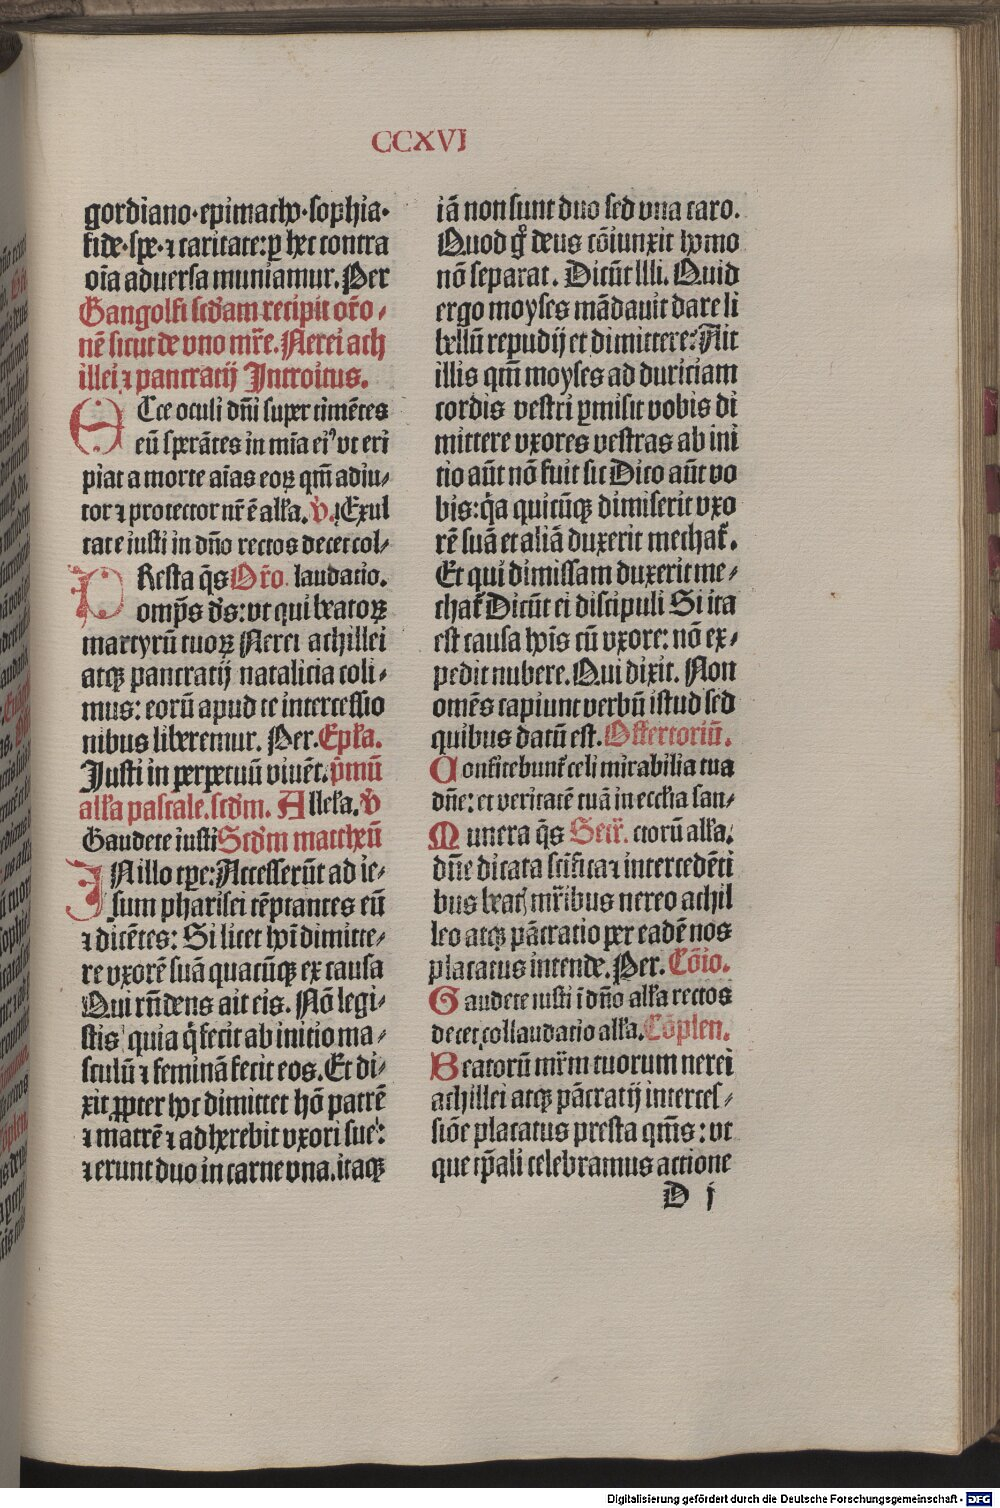 CCXVI
gordiano·epimacho·sophia·
fide·spe·⁊ caritate: ꝑ hec contra
oĩa aduersa muniamur. Per
Gangolfi scd'am recipit or̃o⸗
nẽ sicut de vno mr̃e. Nerei ach
illei ⁊ pancratij Introitus.
ECce oculi dñi super timẽtes
eũ sperãtes in mĩa eiꝰ vt eri
piat a morte aĩas eoꝝ qm̃ adiu⸗
tor ⁊ protector nr̃ ẽ alľa. V̾. Exul
tate iusti in dño rectos decet col⸗
PResta q̃s Or̃o. laudatio.
omp̃s ds̃: vt qui beatoꝝ
martyrũ tuoꝝ Nerei achillei
atqꝫ pancratij natalicia coli⸗
mus: eorũ apud te intercessio
nibus liberemur. Per. Epľa.
Justi in perpetuũ viuẽt. p̃mũ
alľa pascale. scd'm. Alleľa. V̾
Gaudete iusti Scd'm matthẽũ
INillo tꝑe: Accesserũt ad ie⸗
sum pharisei tẽptantes eũ
⁊ dicẽtes: Si licet hoĩ dimitte⸗
re vxorẽ suã quacũqꝫ ex causa
Qui rñdens ait eis. Nõ legi⸗
stis quia q̃ fecit ab initio ma⸗
sculũ ⁊ feminã fecit eos. Et di⸗
xit ꝓpter hoc dimittet hõ patrẽ
⁊ matrẽ ⁊ adherebit vxori sue:
⁊ erunt duo in carne vna. itaqꝫ
iã non sunt duo sed vna caro.
Quod g̊ deus cõiunxit homo
nõ separat. Dicũt illi. Quid
ergo moyses mãdauit dare li
bellũ repudij et dimittere? Ait
illis qm̃ moyses ad duriciam
cordis vestri ꝑmisit vobis di
mittere vxores vestras ab ini
tio aũt nõ fuit sic Dico aũt vo
bis: q̃a quicũqꝫ dimiserit vxo
rẽ suã et aliã duxerit mechať.
Et qui dimissam duxerit me⸗
chať Dicũt ei discipuli Si ita
est causa hoĩs cũ vxore: nõ ex⸗
pedit nubere. Qui dixit. Non
omẽs capiunt verbũ istud sed
quibus datũ est. Offertoriũ.
Confitebunť celi mirabilia tua
dñe: et veritatẽ tuã in eccľia san⸗
Munera q̃s Secr̃. ctorũ alľa.
dñe dicata scĩfica ⁊ intercedẽti
bus beatꝭ mr̃ibus nereo achil
leo atqꝫ pãcratio per eadẽ nos
placatus intende. Per. Cõio.
Gaudete iusti ĩ dño alľa rectos
decet collaudatio alľa. Cõplen.
Beatorũ mr̃m tuorum nerei
achillei atqꝫ pãcratij interces⸗
siõe placatus presta qm̃s: vt
que tp̃ali celebramus actione
D j
Digitalisierung gefördert durch die Deutsche Forschungsgemeinschaft - DFG